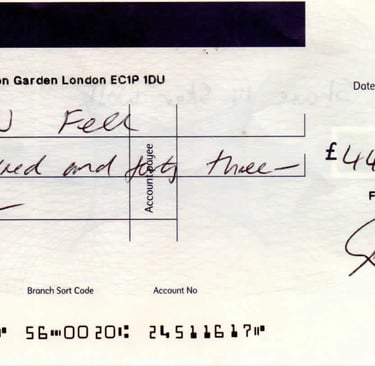 on Garden London EC1P 1DU
Date
Fell
and forty three —
Account payee
£44
Branch Sort Code
Account No
56 00 20 24511617